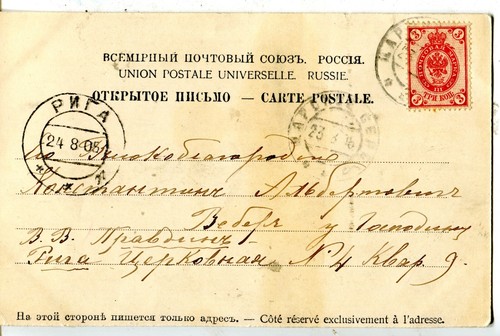 ВСЕМІРНЫЙ ПОЧТОВЫЙ СОЮЗЪ. РОССІЯ.
UNION POSTALE UNIVERSELLE. RUSSIE.
ОТКРЫТОЕ ПИСЬМО — CARTE POSTALE.
3 3
ПОЧТОВАЯ МАРКА
ТРИ КОП.
РИГА
24 8 05
Его Высокоблагородию
Константинъ Альбертовичъ
Веберъ у Господину
В. В. Правдинъ
Рига Церковная № 4 Квар 9.
На этой сторонѣ пишется только адресъ. — Côté réservé exclusivement à l'adresse.